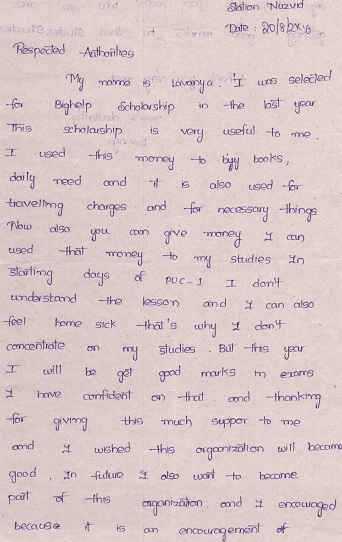 Station Nuzvid
Date : 20/8/2x
Respected Authorities
My name is Lavanya. I was selected
for Bighelp Scholarship in the last year
This scholarship is very useful to me.
I used this money to buy books,
daily need and it is also used for
travelling charges and for necessary things
Now also you can give money I can
used that money to my studies In
starting days of PUC-1 I don't
understand the lesson and I can also
feel home sick that's why I don't
concentrate on my studies. But this year
I will be get good marks in exams
I have confident on that. and thanking
for giving this much suppor to me
and I wished this organization will became
good. In future I also want to become
part of this organization. and I encouraged
because it is an encouragement of